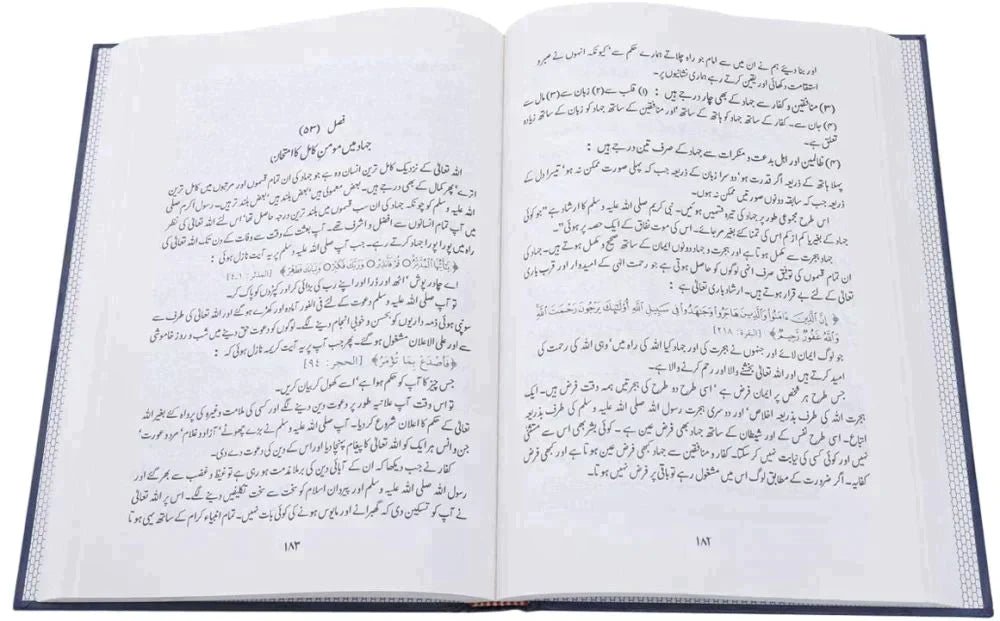 اور بنا دیئے ہم نے ان میں سے امام جو راہ چلاتے ہمارے حکم سے' کیونکہ انہوں نے صبر و
استقامت دکھائی اور یقین کرتے رہے ہماری نشانیوں پر۔
(۳) منافقین و کفار سے جہاد کے بھی چار درجے ہیں : (۱) قلب سے (۲) زبان سے (۳) مال سے
(۴) جان سے۔ کفار کے ساتھ جہاد کو ہاتھ کے ساتھ' اور منافقین کے ساتھ جہاد کو زبان کے ساتھ زیادہ
تعلق ہے۔
(۴) ظالمین اور اہل بدعت و منکرات سے جہاد کے صرف تین درجے ہیں :
پہلا ہاتھ کے ذریعہ اگر قدرت ہو' دوسرا زبان کے ذریعہ جب کہ پہلی صورت ممکن نہ ہو' تیسرا دل کے
ذریعہ جب کہ سابقہ دونوں صورتیں ممکن نہ ہوں۔
اس طرح مجموعی طور پر جہاد کی تیرہ قسمیں ہوئیں۔ نبی کریم صلی اللہ علیہ وسلم کا ارشاد ہے "جو کوئی
جہاد کے بغیر یا کم از کم اس کی تمنا کئے بغیر مر جائے۔ اس کی موت نفاق کے ایک حصہ پر ہوئی"۔
جہاد ہجرت سے مکمل ہوتا ہے اور ہجرت و جہاد دونوں ایمان کے ساتھ صحیح و مکمل ہوتے ہیں۔ جہاد کی
ان تمام قسموں کی توفیق صرف انہی لوگوں کو حاصل ہوتی ہے جو رحمت الہی کے امیدوار اور قرب باری
تعالیٰ کے لئے بے قرار ہوتے ہیں۔ ارشاد باری تعالیٰ ہے :
﴿ إِنَّ ٱلَّذِينَ ءَامَنُوا۟ وَٱلَّذِينَ هَاجَرُوا۟ وَجَٰهَدُوا۟ فِى سَبِيلِ ٱللَّهِ أُو۟لَٰٓئِكَ يَرْجُونَ رَحْمَتَ ٱللَّهِ
وَٱللَّهُ غَفُورٌ رَّحِيمٌ﴾ [البقرة: ٢١٨]
جو لوگ ایمان لائے اور جنہوں نے ہجرت کی اور جہاد کیا اللہ کی راہ میں' وہی اللہ کی رحمت کی
امید کرتے ہیں اور اللہ تعالیٰ بخشنے والا اور رحم کرنے والا ہے۔
جس طرح ہر شخص پر ایمان فرض ہے' اسی طرح دو طرح کی ہجرتیں ہمہ وقت فرض ہیں۔ ایک
ہجرت اللہ کی طرف بذریعہ اخلاص' اور دوسری ہجرت رسول اللہ صلی اللہ علیہ وسلم کی طرف بذریعہ
اتباع۔ اسی طرح نفس کے اور شیطان کے ساتھ جہاد بھی فرض عین ہے۔ کوئی بشر بھی اس سے مستثنیٰ
نہیں اور کوئی کسی کی نیابت نہیں کر سکتا۔ کفار و منافقین سے جہاد کبھی فرض عین ہوتا ہے اور کبھی فرض
کفایہ۔ اگر ضرورت کے مطابق لوگ اس میں مشغول رہے تو باقی پر فرض نہیں ہوتا۔
۱۸۲
فصل (۵۳)
جہاد میں مومن کامل کا امتحان
اللہ تعالیٰ کے نزدیک کامل ترین انسان وہ ہے جو جہاد کی ان تمام قسموں اور مرتبوں میں کامل ترین
اترے' پھر کمال کے بھی درجے ہیں۔ بعض معمولی ہیں' بعض بلند' بعض بلند تر ہیں۔ رسول اکرم صلی
اللہ علیہ وسلم کو چونکہ جہاد کی ان سب قسموں میں بلند ترین درجہ حاصل تھا' اس لئے اللہ تعالیٰ کی نظر
میں آپ تمام انسانوں سے افضل و اشرف تھے۔ آپ بعثت کے وقت سے وفات کے دن تک اللہ تعالیٰ کی
راہ میں پورا پورا جہاد کرتے رہے۔ جب آپ صلی اللہ علیہ وسلم پر یہ آیت نازل ہوئی :
﴿يَٰٓأَيُّهَا ٱلْمُدَّثِّرُ ○ قُمْ فَأَنذِرْ ○ وَرَبَّكَ فَكَبِّرْ ○ وَثِيَابَكَ فَطَهِّرْ﴾ [المدثر: ١-٤]
اے چادر پوش' اٹھ اور ڈرا اور اپنے رب کی بڑائی کر اور کپڑوں کو پاک کر۔
تو آپ صلی اللہ علیہ وسلم دعوت کے لئے فی الفور آمادہ اور کھڑے ہو گئے اور اللہ تعالیٰ کی طرف سے
سونپی ہوئی ذمہ داریوں کو بحسن و خوبی انجام دینے لگے۔ لوگوں کو دعوت حق دینے میں شب و روز خاموشی
سے اور علی الاعلان مشغول ہو گئے۔ پھر جب آپ پر یہ آیت کریمہ نازل ہوئی کہ :
﴿فَٱصْدَعْ بِمَا تُؤْمَرُ﴾ [الحجر: ٩٤]
جس چیز کا آپ کو حکم ہوا ہے' اسے کھول کر بیان کریں۔
تو اس وقت آپ علانیہ طور پر دعوت دین دینے لگے اور کسی کی ملامت وغیرہ کی پرواہ کئے بغیر اللہ
تعالیٰ کے حکم کا اعلان شروع کر دیا۔ آپ صلی اللہ علیہ وسلم نے بڑے چھوٹے' آزاد و غلام' مرد و عورت'
جن و انس ہر ایک کو اللہ تعالیٰ کا پیغام پہنچا دیا اور اس کے دین کی دعوت دے دی۔
کفار نے جب دیکھا کہ ان کے آبائی دین کی برملا مذمت ہو رہی ہے تو غیظ و غضب سے بھر گئے اور
رسول اللہ صلی اللہ علیہ وسلم اور پیروان اسلام کو سخت سے سخت تکلیفیں دینے لگے۔ اس پر اللہ تعالیٰ
نے آپ کو تسکین دی کہ گھبرانے اور مایوس ہونے کی کوئی بات نہیں۔ تمام انبیاء کرام کے ساتھ یہی ہوتا
۱۸۳